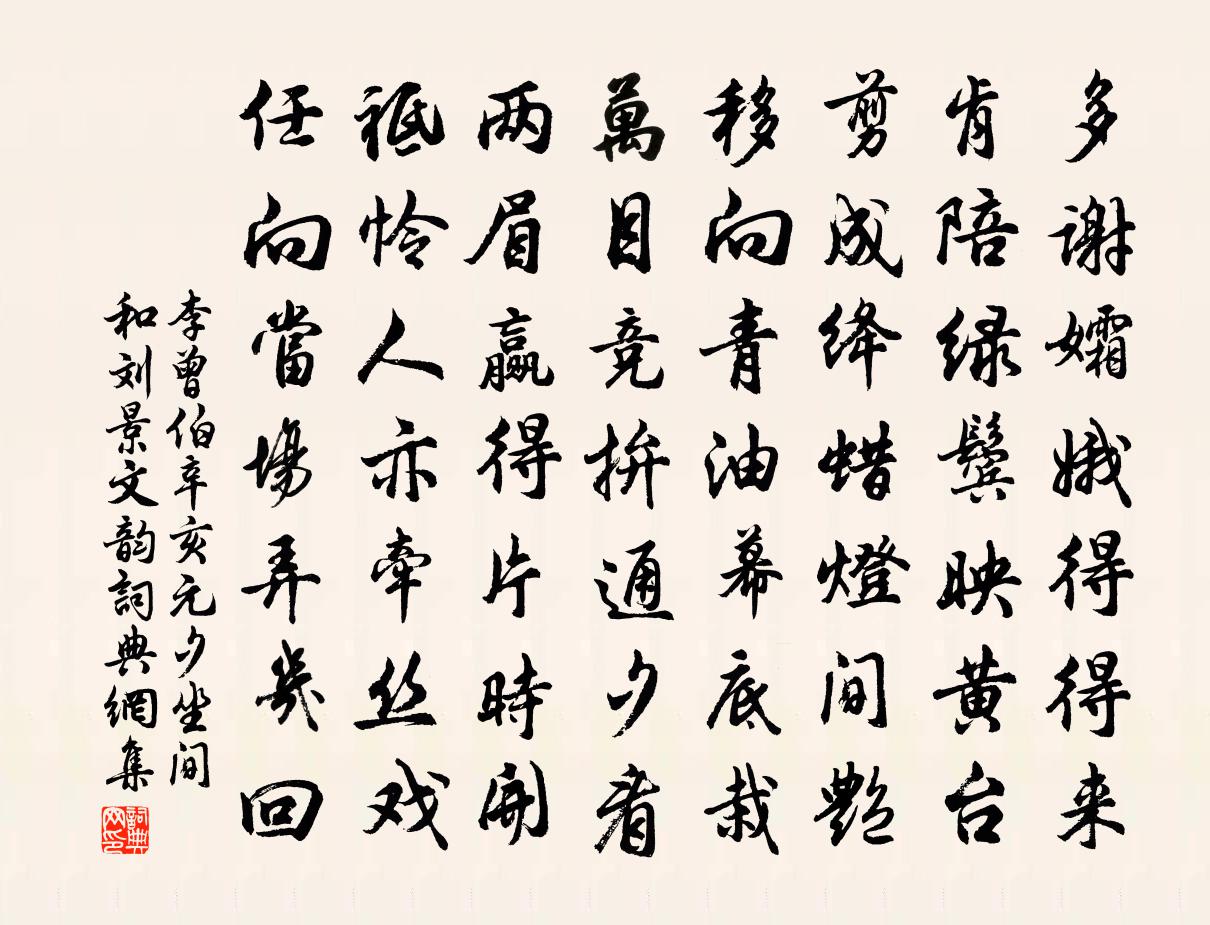 多谢孀娥得得来
肯陪绿鬓映黄台
剪成绛蜡燈间艷
移向青油幕底栽
萬目竞拚通夕看
两眉赢得片時開
祗怜人亦牵丝戏
任向當場弄幾回
李曾伯辛亥元夕坐间
和刘景文韵詞典網集
詞典
网印